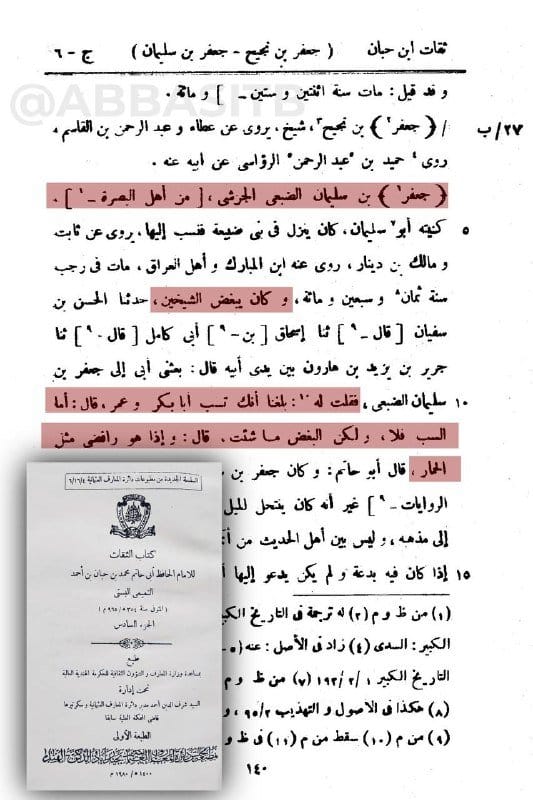 ثقات ابن حبان ( جعفر بن نجيح - جعفر بن سليمان ) ج - ٦
@ABBASITB
و قد قيل : مات سنة اثنتين و ستين - ] و مائة .
٢٧/ب / ﴿ جعفر ٢ ﴾ بن نجيح ٣، شيخ، يروى عن عطاء و عبد الرحمن بن القاسم،
روى ٤ حميد بن ٥ عبد الرحمن ٥ الرؤاسى عن ابيه عنه .
﴿ جعفر ٦ ﴾ بن سليمان الضبعى الجرشى، [ من أهل البصرة - ١ ] .
٥ كنيته أبو ٧ سليمان، كان ينزل فى بنى ضبيعة فنسب إليها، يروى عن ثابت
و مالك بن دينار، روى عنه ابن المبارك و أهل العراق، مات فى رجب
سنة ثمان ٨ و سبعين و مائة، و كان يبغض الشيخين، حدثنا الحسن بن
سفيان [ قال - ٩ ] ثنا إسحاق [ بن - ٩ ] أبى كامل [ قال - ٩ ] ثنا
جرير بن يزيد بن هارون بين يدى أبيه قال : بعثنى أبى إلى جعفر بن
١٠ سليمان الضبعى، فقلت له ١٠ : بلغنا أنك تسب أبا بكر و عمر، قال : أما
السب فلا، و لكن البغض ما شئت. قال : و إذا هو رافضى مثل
الحمار، قال أبو حاتم : و كان جعفر بن
الروايات - ٩ ] غير أنه كان ينتحل الميل
إلى مذهبه، و ليس بين أهل الحديث من أئ
١٥ إذا كان فيه بدعة و لم يكن يدعو إليها أ
(١) من ظ و م (٢) له ترجمة فى التاريخ الكبير
الكبير : السدى (٤) زاد فى الأصل : عنه (٥-
التاريخ الكبير ١ / ٢ / ١٩٢ (٧) من ظ و م
(٨) هكذا فى الأصول و التهذيب ٢ / ٩٥، و
(٩) من م (١٠) سقط من م (١١) فى ظ و
١٤٠
السلسلة الجديدة من مطبوعات دائرة المعارف العثمانية ٦/١٦/٤
كتاب الثقات
للامام الحافظ أبى حاتم محمد بن حبان بن أحمد
التميمى البستى
( المتوفى سنة ٣٥٤ ه / ٩٦٥ م )
الجزء السادس
طبع
بمساعدة وزارة المعارف و الشؤون الثقافية للحكومة الهندية العالية
تحت إدارة
السيد شرف الدين أحمد مدير دائرة المعارف العثمانية و سكرتيرها
قاضى المحكمة العليا سابقا
الطبعة الأولى
١٤٠٠ ه / ١٩٨٠ م